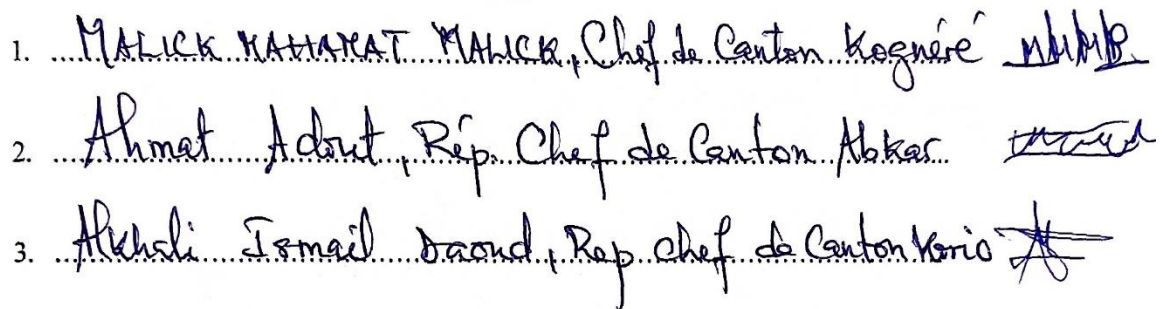 1. MALICK MAHAMAT MALICK, Chef de Canton Kognéré
2. Ahmat Adout, Rép. Chef de Canton Abkar
3. Alkhali Ismail Daoud, Rep chef de Canton Kerio